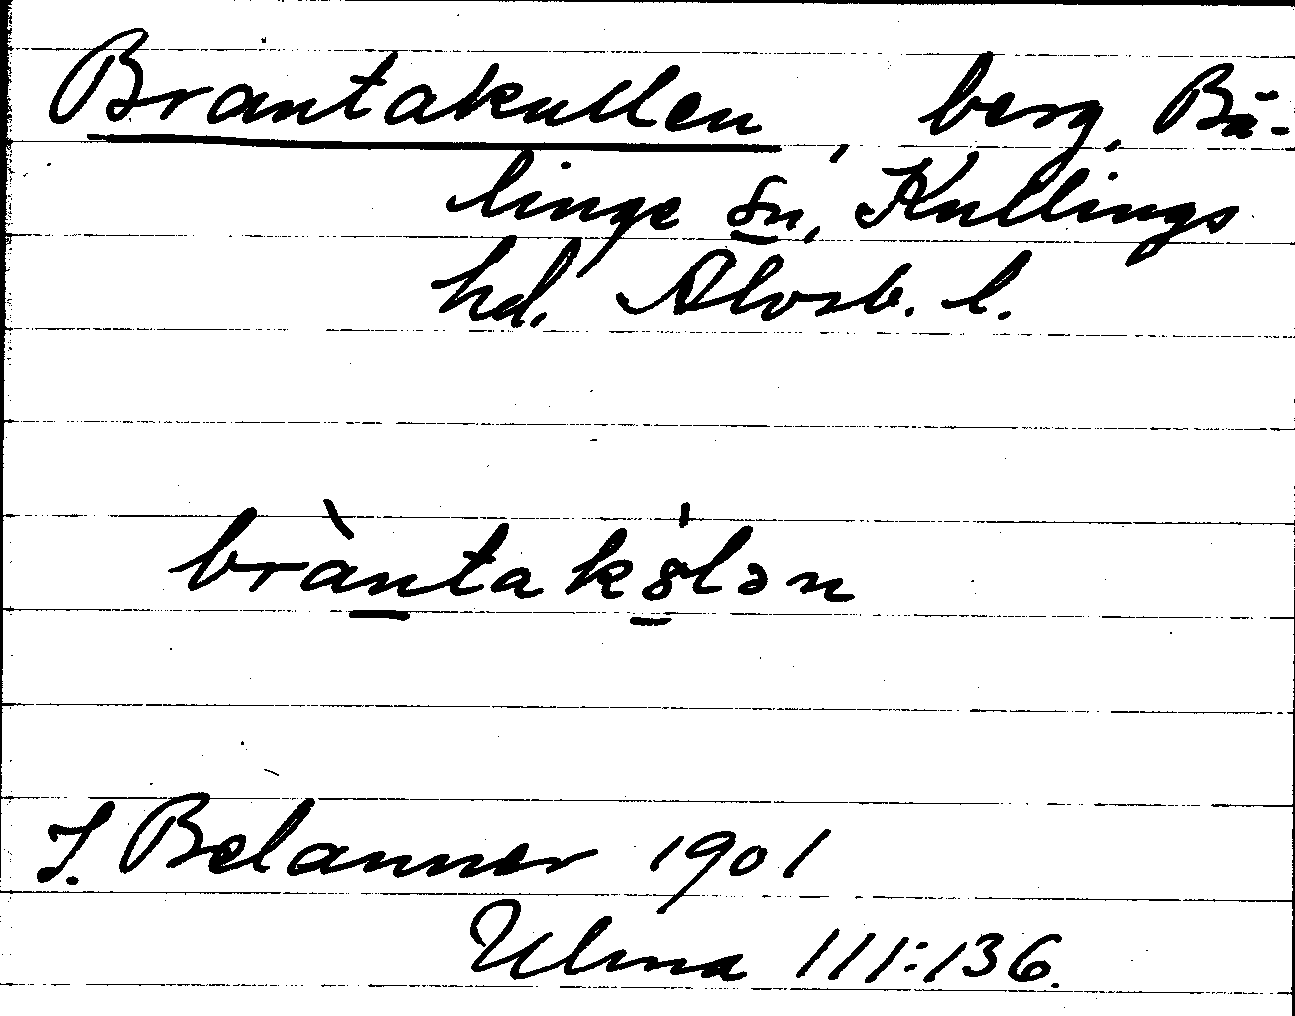 Brantakullen, berg, Bä-
linge sn, Kullings
hd. Älvsb. l.
bràntakölən
J. Belanner 1901
Ulma 111:136.